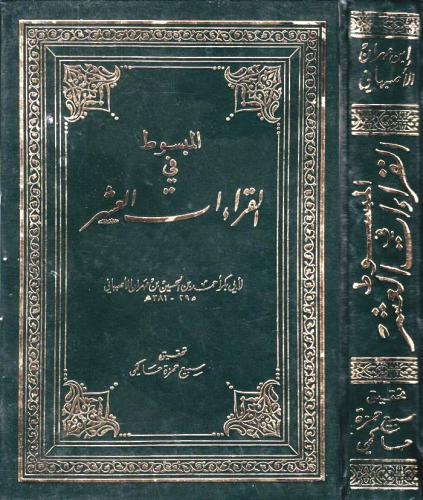 المبسوط
في
القراءات العشر
لأبي بكر أحمد بن الحسين بن مهران الأصبهاني
٢٩٥ - ٣٨١ هـ
تحقيق
سبيع حمزة حاكمي
ابن مهران
الأصبهاني
المبسوط
في
القراءات العشر
تحقيق
سبيع حمزة
حاكمي